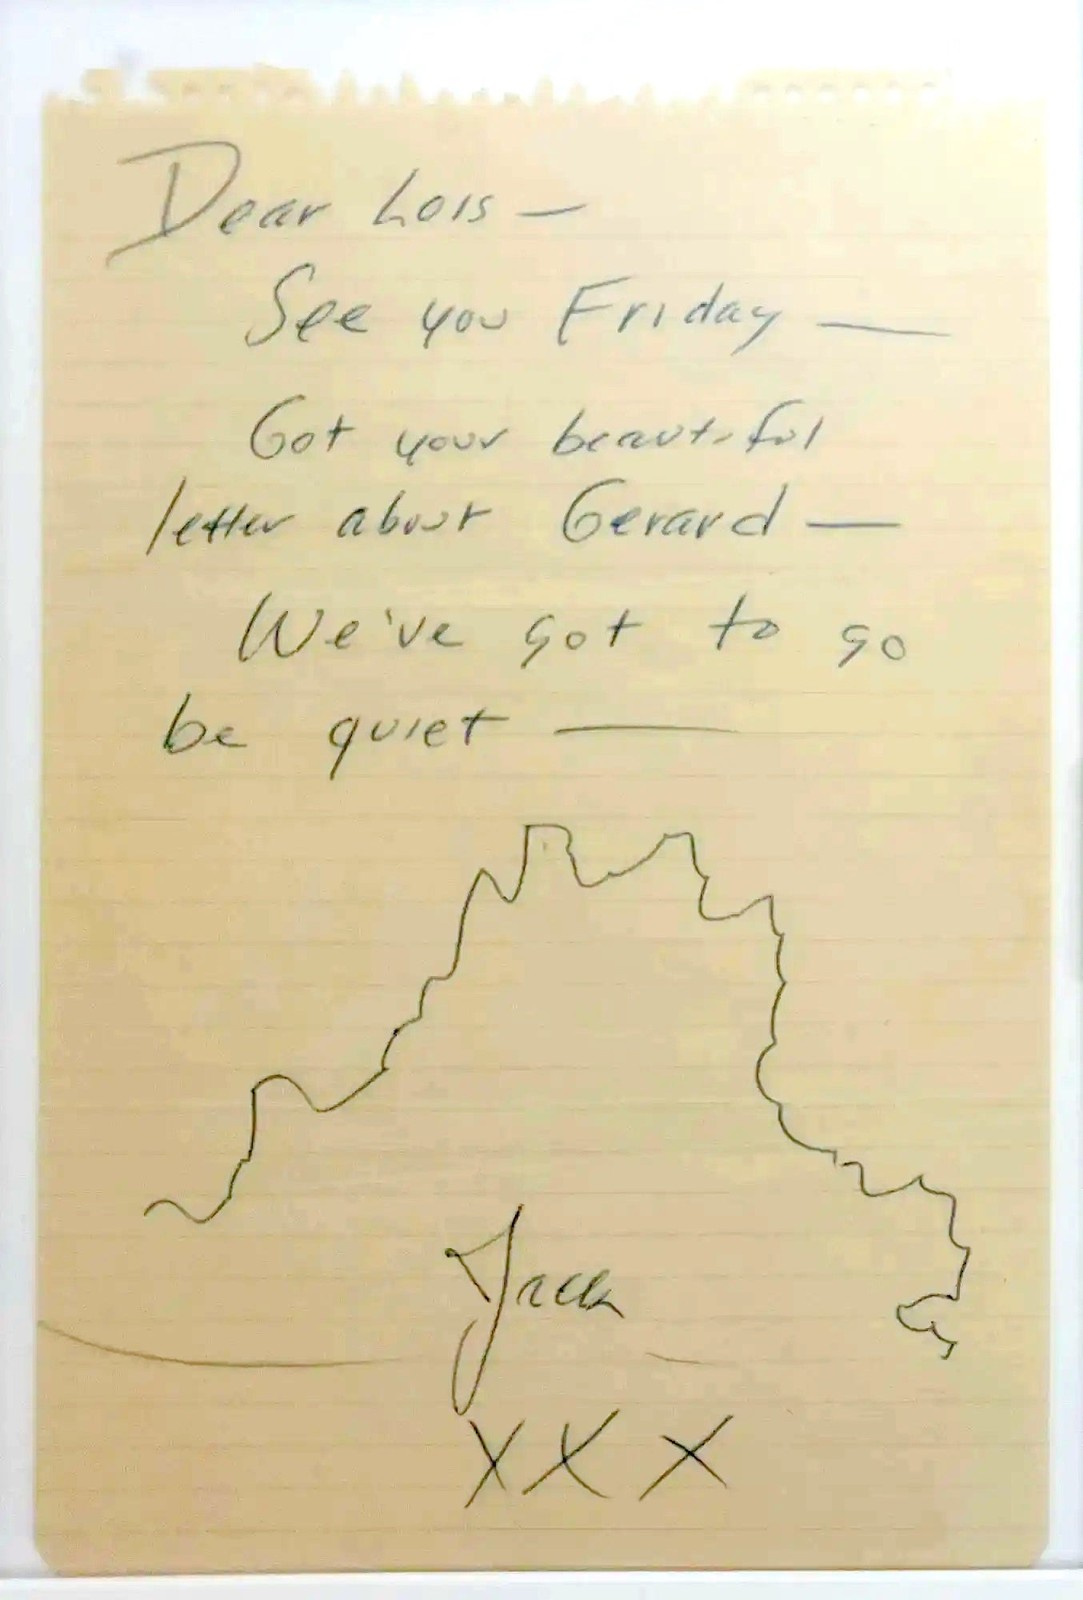 Dear Lois —
See you Friday —
Got your beautiful
letter about Gerard —
We've got to go
be quiet —
Jack
X X X